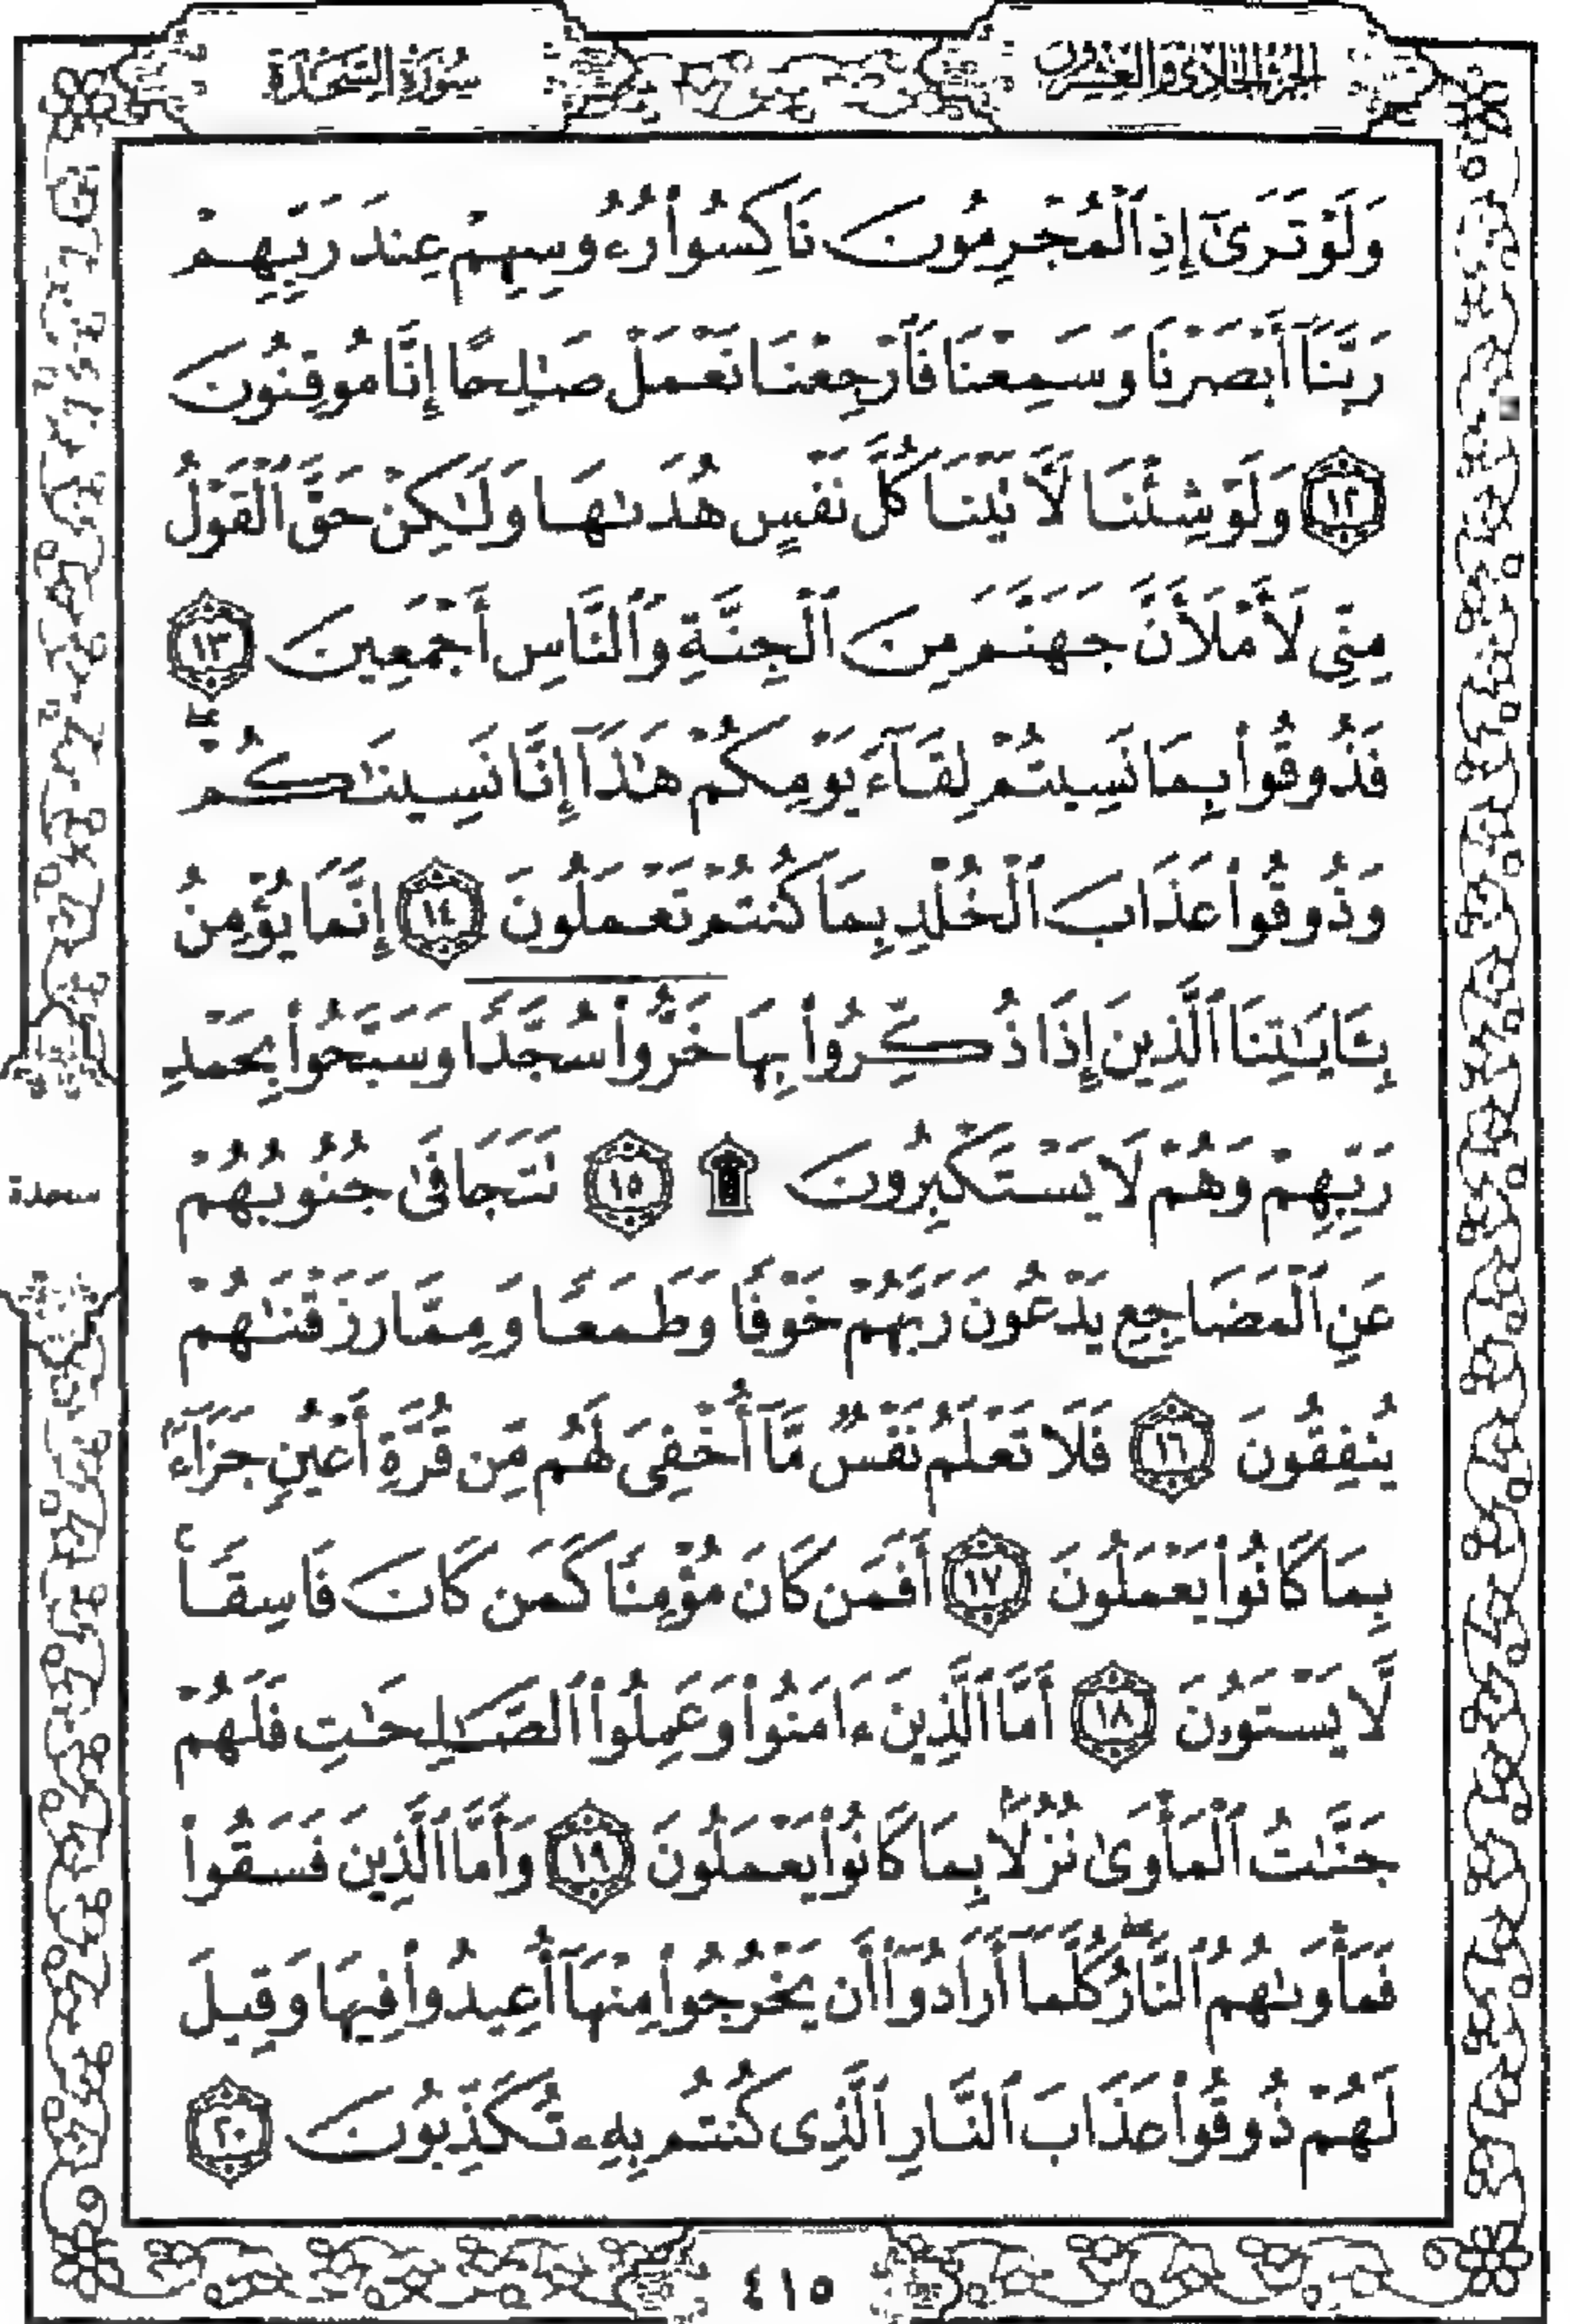 الجزء الحادي والعشرون
سورة السجدة
وَلَوْ تَرَىٰٓ إِذِ ٱلْمُجْرِمُونَ نَاكِسُوا۟ رُءُوسِهِمْ عِندَ رَبِّهِمْ
رَبَّنَآ أَبْصَرْنَا وَسَمِعْنَا فَٱرْجِعْنَا نَعْمَلْ صَٰلِحًا إِنَّا مُوقِنُونَ
١٢ وَلَوْ شِئْنَا لَأٓتَيْنَا كُلَّ نَفْسٍ هُدَىٰهَا وَلَٰكِنْ حَقَّ ٱلْقَوْلُ
مِنِّى لَأَمْلَأَنَّ جَهَنَّمَ مِنَ ٱلْجِنَّةِ وَٱلنَّاسِ أَجْمَعِينَ ١٣
فَذُوقُوا۟ بِمَا نَسِيتُمْ لِقَآءَ يَوْمِكُمْ هَٰذَآ إِنَّا نَسِينَٰكُمْ ۖ
وَذُوقُوا۟ عَذَابَ ٱلْخُلْدِ بِمَا كُنتُمْ تَعْمَلُونَ ١٤ إِنَّمَا يُؤْمِنُ
بِـَٔايَٰتِنَا ٱلَّذِينَ إِذَا ذُكِّرُوا۟ بِهَا خَرُّوا۟ سُجَّدًا وَسَبَّحُوا۟ بِحَمْدِ
رَبِّهِمْ وَهُمْ لَا يَسْتَكْبِرُونَ ۩ ١٥ تَتَجَافَىٰ جُنُوبُهُمْ
سجدة
عَنِ ٱلْمَضَاجِعِ يَدْعُونَ رَبَّهُمْ خَوْفًا وَطَمَعًا وَمِمَّا رَزَقْنَٰهُمْ
يُنفِقُونَ ١٦ فَلَا تَعْلَمُ نَفْسٌ مَّآ أُخْفِىَ لَهُم مِّن قُرَّةِ أَعْيُنٍ جَزَآءًۢ
بِمَا كَانُوا۟ يَعْمَلُونَ ١٧ أَفَمَن كَانَ مُؤْمِنًا كَمَن كَانَ فَاسِقًا ۚ
لَّا يَسْتَوُۥنَ ١٨ أَمَّا ٱلَّذِينَ ءَامَنُوا۟ وَعَمِلُوا۟ ٱلصَّٰلِحَٰتِ فَلَهُمْ
جَنَّٰتُ ٱلْمَأْوَىٰ نُزُلًۢا بِمَا كَانُوا۟ يَعْمَلُونَ ١٩ وَأَمَّا ٱلَّذِينَ فَسَقُوا۟
فَمَأْوَىٰهُمُ ٱلنَّارُ ۖ كُلَّمَآ أَرَادُوٓا۟ أَن يَخْرُجُوا۟ مِنْهَآ أُعِيدُوا۟ فِيهَا وَقِيلَ
لَهُمْ ذُوقُوا۟ عَذَابَ ٱلنَّارِ ٱلَّذِى كُنتُم بِهِۦ تُكَذِّبُونَ ٢٠
٤١٥